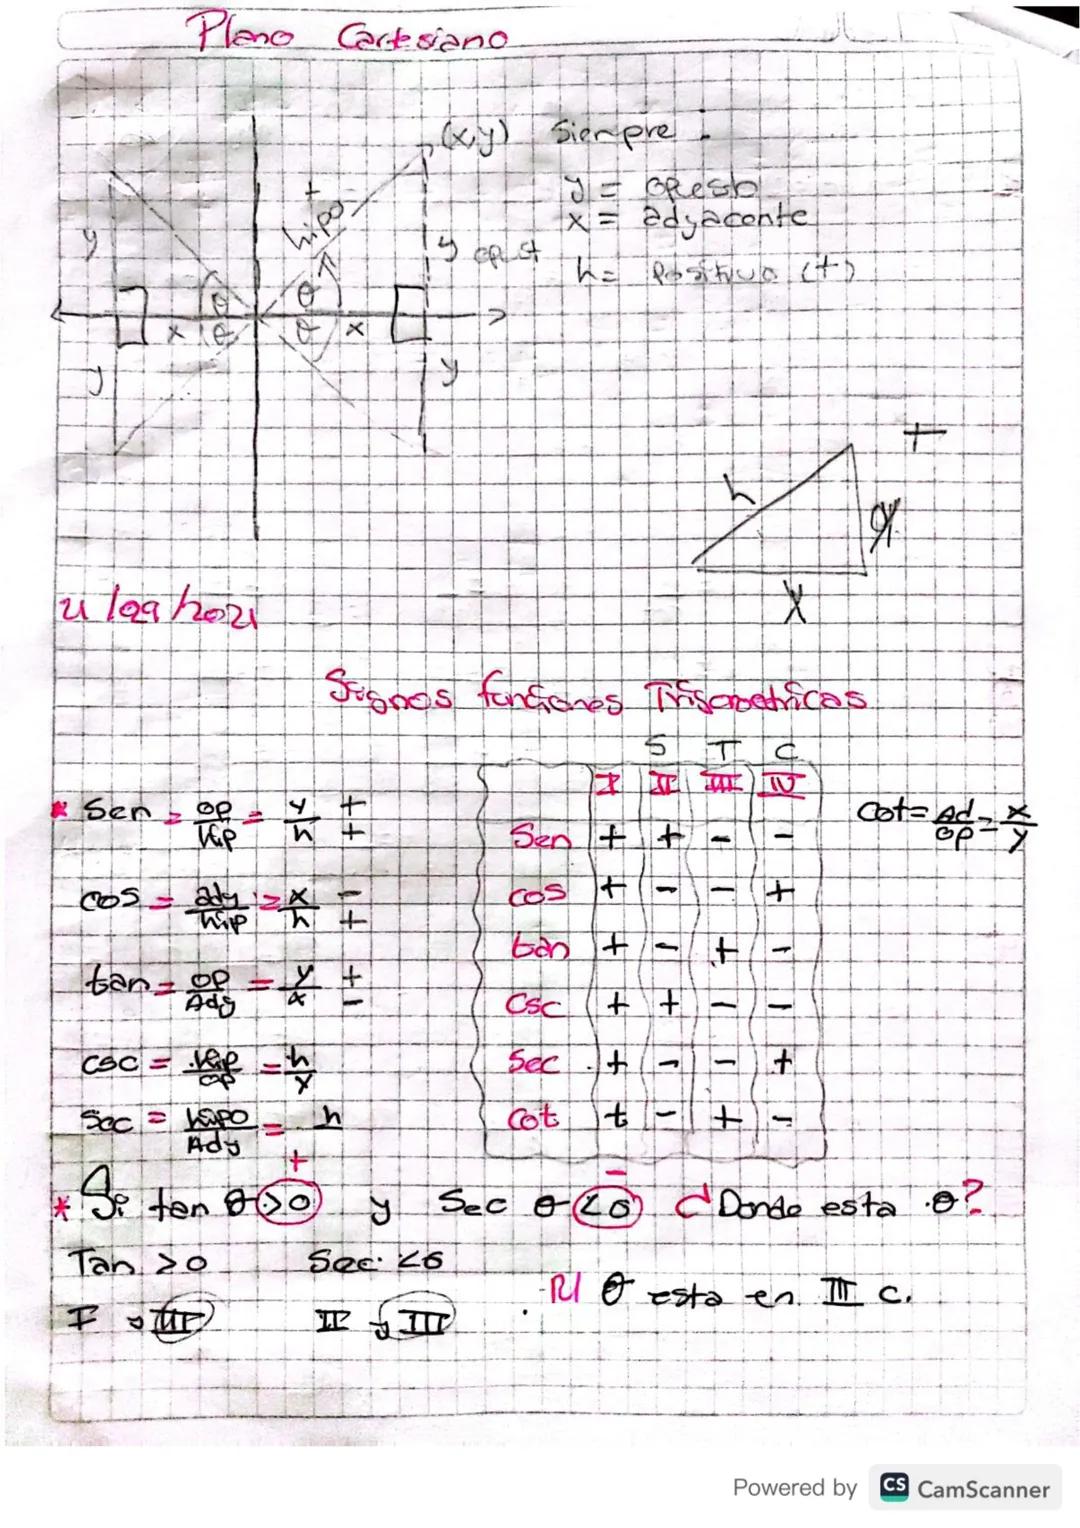 Plano Cartesiano
(x,y) Siempre :
y = opuesto
x = adyacente
h = positivo (+)
+
hipo
y
y
θ θ
x θ θ x
y
y
+
h
y
x
/09/2021
Signos funciones Trigonometricas
S T C
I II III IV
* Sen = op/hip = y/h +/+
Sen + + - -
cot = Ad/op = x/y
cos = ady/hip = x/h -/+
cos + - - +
tan = op/Ady = y/x +/-
tan + - + -
Csc + + - -
csc = hip/op = h/y
Sec + - - +
Sec = hipo/Ady = h
Cot + - + -
+ -
* Si tan θ >0 y Sec θ <0 ¿Donde esta θ?
Tan >0 Sec <0
R/ θ esta en III c.
I y III II y III
Powered by CS CamScanner